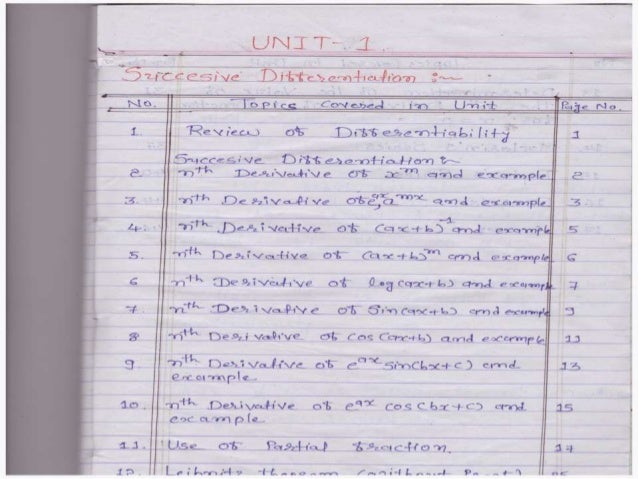 UNIT-1.
Succesive Differentiation :~
No. Topics Covered in Unit Page No.
1. Review of Differentiability 1
Succesive Differentiation :~
2. nth Derivative of x^m and example 2
3. nth Derivative of e^ax, a^mx and example 3
4. nth Derivative of (ax+b)^-1 and example 5
5. nth Derivative of (ax+b)^m and example 6
6 nth Derivative of log(ax+b) and example 7
7. nth Derivative of Sin(ax+b) and example 9
8. nth Derivative of cos(ax+b) and example 11
9. nth Derivative of e^ax sin(bx+c) and 13
example
10. nth Derivative of e^ax cos(bx+c) and 15
example
11. Use of Partial fraction. 17
12. Leibnitz theorem